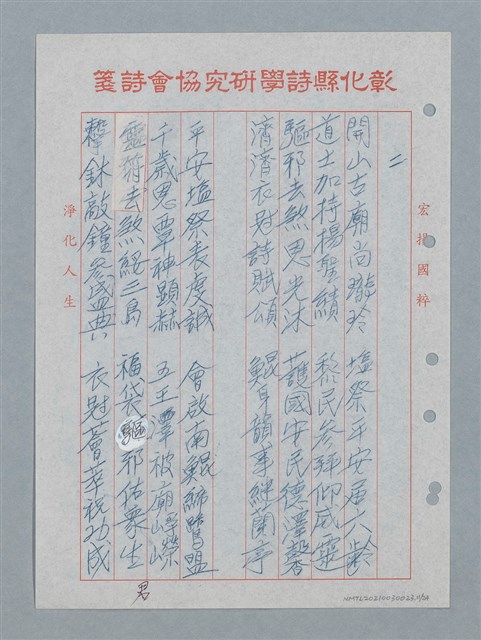 彰化縣詩學研究協會詩箋
宏揚國粹
二
開山古廟尚瓏玲 塩祭平安届六齡
道士加持揚聖績 黎民參拜仰威靈
驅邪去煞恩光沐 護國安民德澤馨
濟濟衣冠詩賦頌 鯤身韻事継蘭亭
平安塩祭表虔誠 會啟南鯤締鷺盟
千歲恩覃神顯赫 五王澤被廟崢嶸
靈符去煞綏三島 福袋驅邪佑眾生
擊鉢敲鐘參盛典 衣冠薈萃祝功成
淨化人生
NMTL20210030023